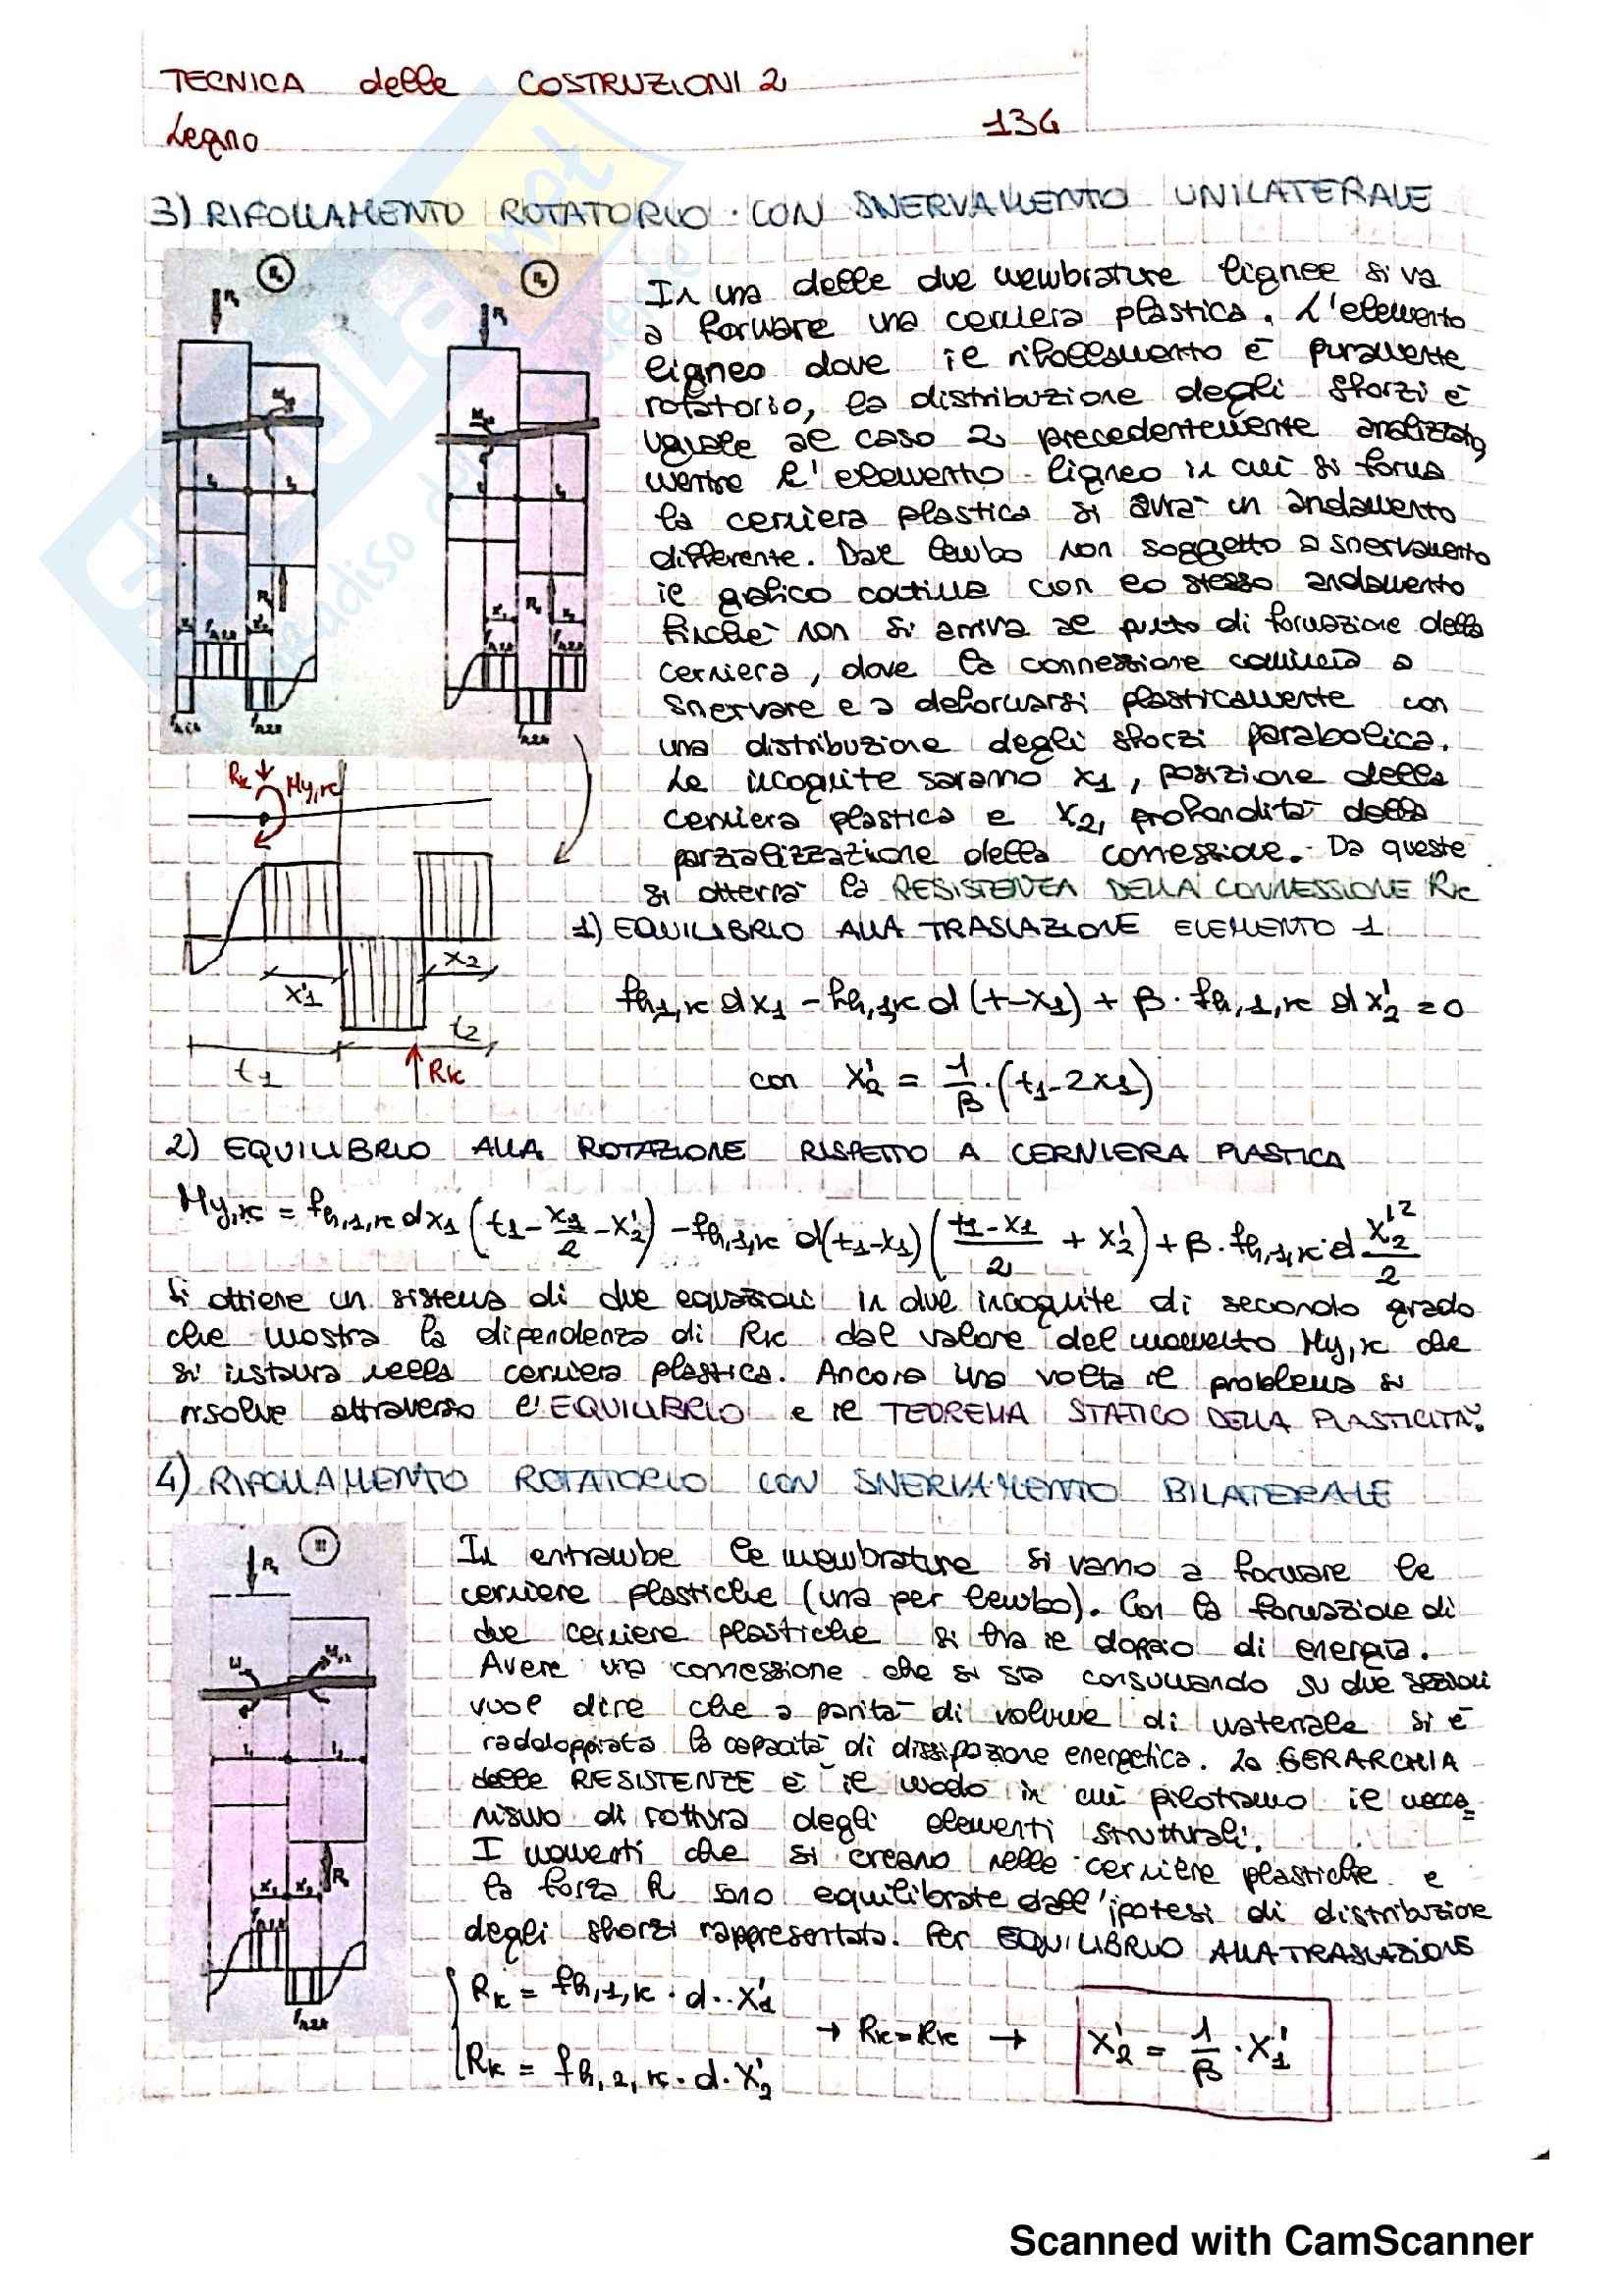 TECNICA delle COSTRUZIONI 2
Legno
134
3) RIFOLLAMENTO ROTATORIO CON SNERVAMENTO UNILATERALE
In una delle due membrature lignee si va
a formare una cerniera plastica. L'elemento
ligneo dove il rifollamento è puramente
rotatorio, la distribuzione degli sforzi è
uguale al caso 2 precedentemente analizzato,
mentre l'elemento ligneo in cui si forma
la cerniera plastica si avrà un andamento
differente. Dal lembo non soggetto a snervamento
il grafico continua con lo stesso andamento
finché non si arriva al punto di formazione della
cerniera, dove la connessione comincia a
snervare e a deformarsi plasticamente con
una distribuzione degli sforzi parabolica.
Le incognite saranno x1, posizione della
cerniera plastica e x2, profondità della
parzializzazione della connessione. Da queste
si otterrà la RESISTENZA DELLA CONNESSIONE Rk
Rk My,k
x'1 x2
t1 t2
Rk
1) EQUILIBRIO ALLA TRASLAZIONE ELEMENTO 1
fh1,k dx1 - fh,1,k d (t-x1) + β · fh,1,k d x'2 = 0
con x'2 = 1/β · (t1 - 2x1)
2) EQUILIBRIO ALLA ROTAZIONE RISPETTO A CERNIERA PLASTICA
My,k = fh,1,k dx1 (t1 - x1/2 - x'2) - fh,1,k d(t1-x1) ((t1-x1)/2 + x'2) + β · fh,1,k · d x'2²/2
Si ottiene un sistema di due equazioni in due incognite di secondo grado
che mostra la dipendenza di Rk dal valore del momento My,k che
si instaura nella cerniera plastica. Ancora una volta il problema si
risolve attraverso l'EQUILIBRIO e il TEOREMA STATICO DELLA PLASTICITÀ.
4) RIFOLLAMENTO ROTATORIO CON SNERVAMENTO BILATERALE
In entrambe le membrature si vanno a formare le
cerniere plastiche (una per lembo). Con la formazione di
due cerniere plastiche si ha il doppio di energia.
Avere una connessione che si sta consumando su due sezioni
vuol dire che a parità di volume di materiale si è
raddoppiata la capacità di dissipazione energetica. La GERARCHIA
delle RESISTENZE è il modo in cui pilotiamo il mecca=
nismo di rottura degli elementi strutturali.
I momenti che si creano nelle cerniere plastiche e
la forza R sono equilibrate dall'ipotesi di distribuzione
degli sforzi rappresentata. Per EQUILIBRIO ALLA TRASLAZIONE
Rk = fh,1,k · d · x'1
Rk = fh,2,k · d · x'2
→ Rk = Rk → x'2 = 1/β · x'1
Scanned with CamScanner